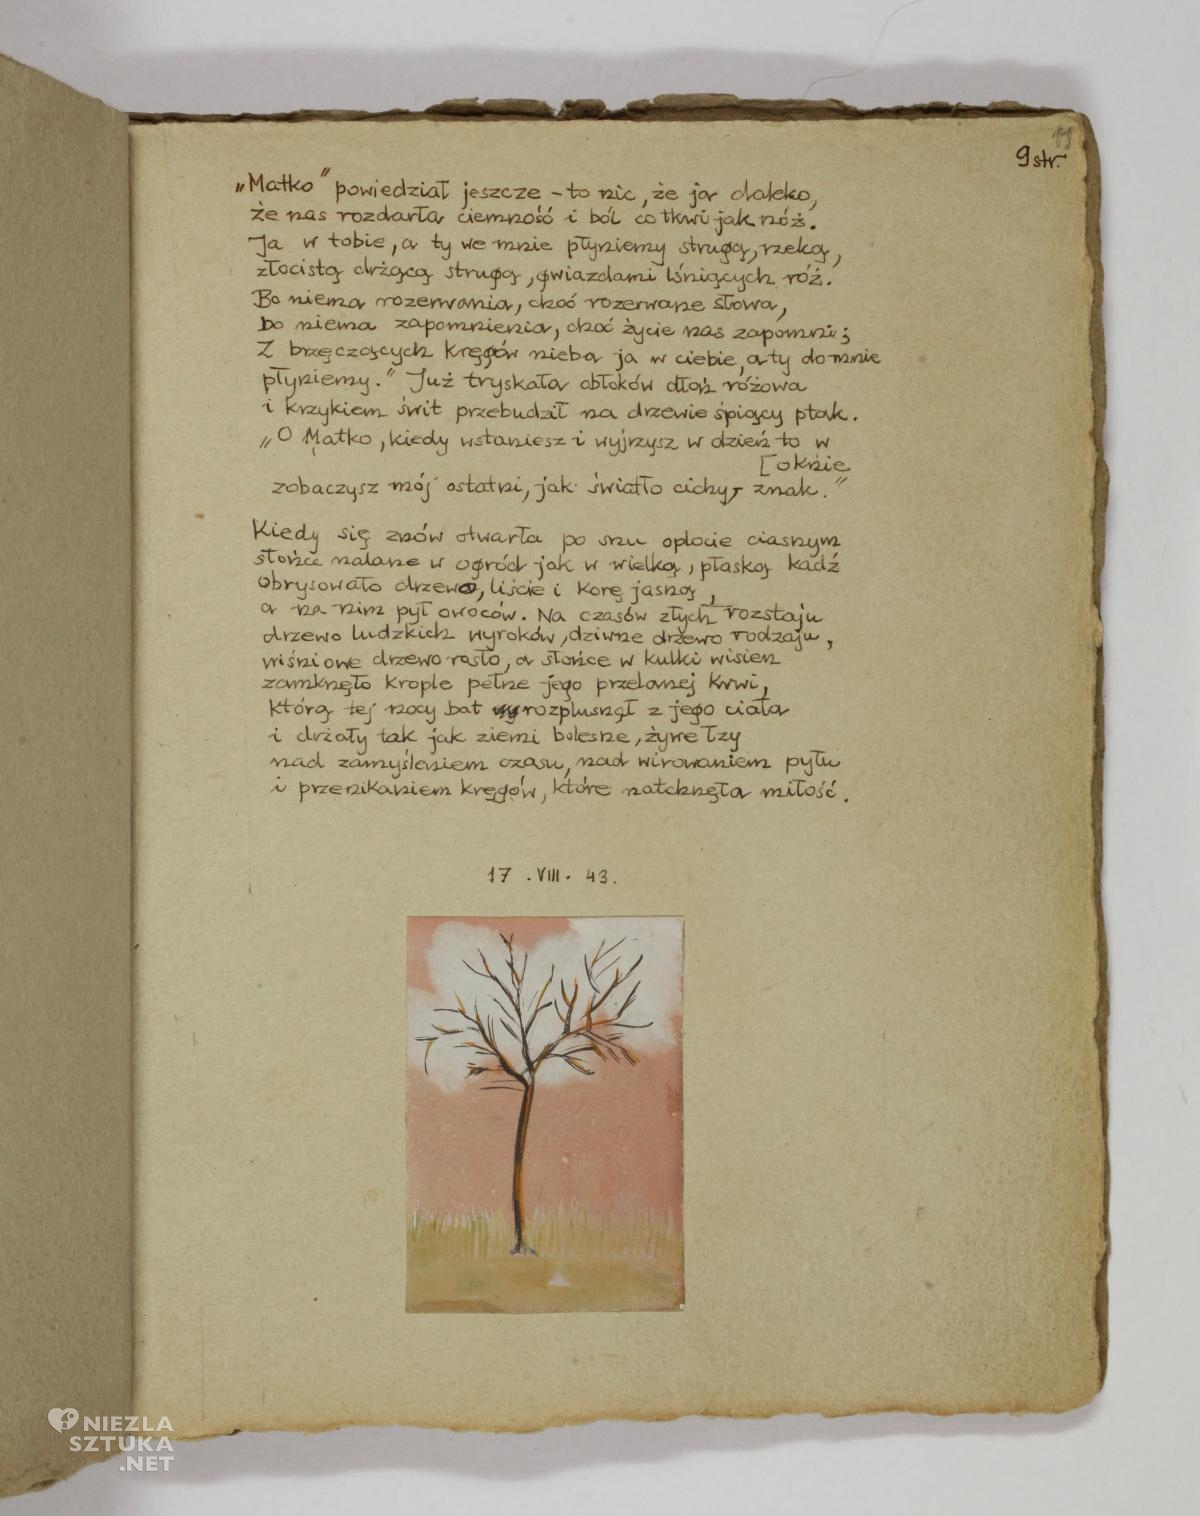 9 str.
„Matko” powiedział jeszcze – to nic, że ja daleko,
że nas rozdarła ciemność i ból co tkwi jak nóż.
Ja w tobie, a ty we mnie płyniemy strugą, rzeką,
złocistą drżącą strugą, gwiazdami lśniących róż.
Bo niema rozerwania, choć rozerwane słowa,
bo niema zapomnienia, choć życie nas zapomni;
Z brzęczących kręgów nieba ja w ciebie, a ty do mnie
płyniemy.” Już tryskała obłoków dłoń różowa
i krzykiem świt przebudził na drzewie śpiący ptak.
„O Matko, kiedy wstaniesz i wyjrzysz w dzień to w
[oknie
zobaczysz mój ostatni, jak światło cichy, znak.”
Kiedy się znów otwarła po snu oplocie ciasnym
słońce nalane w ogród jak w wielką, płaską kadź
obrysowało drzewo, liście i korę jasną,
a na nim pył owoców. Na czasów złych rozstaju
drzewo ludzkich wyroków, dziwne drzewo rodzaju,
wiśniowe drzewo rosło, a słońce w kulki wisien
zamknęło krople pełne jego przelanej krwi,
którą tej nocy bat rozplusnął z jego ciała
i drżały tak jak ziemi bolesne, żywe łzy
nad zamyśleniem czasu, nad wirowaniem pyłu
i przenikaniem kręgów, które natchnęła miłość.
17 . VIII . 43.
NIEZLA
SZTUKA
.NET